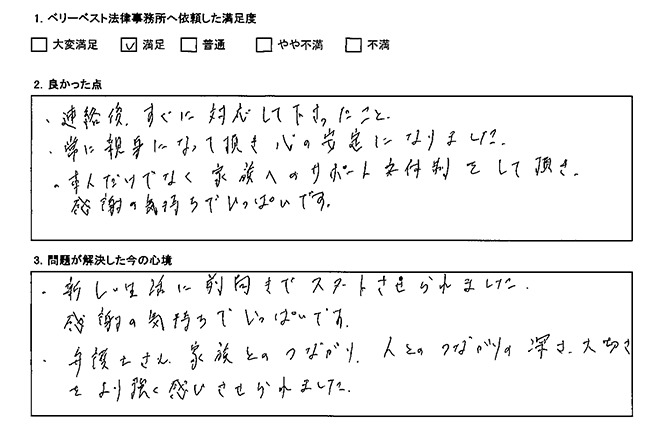 1. ベリーベスト法律事務所へ依頼した満足度
□ 大変満足 ☑ 満足 □ 普通 □ やや不満 □ 不満
2. 良かった点
・連絡後、すぐに対応して下さったこと。
・常に親身になって頂き心の安定になりました。
・本人だけでなく家族へのサポート体制をして頂き、
感謝の気持ちでいっぱいです。
3. 問題が解決した今の心境
・新しい生活に前向きでスタートさせられました。
感謝の気持ちでいっぱいです。
・弁護士さん、家族とのつながり、人とのつながりの深さ、大切さ
をより強く感じさせられました。